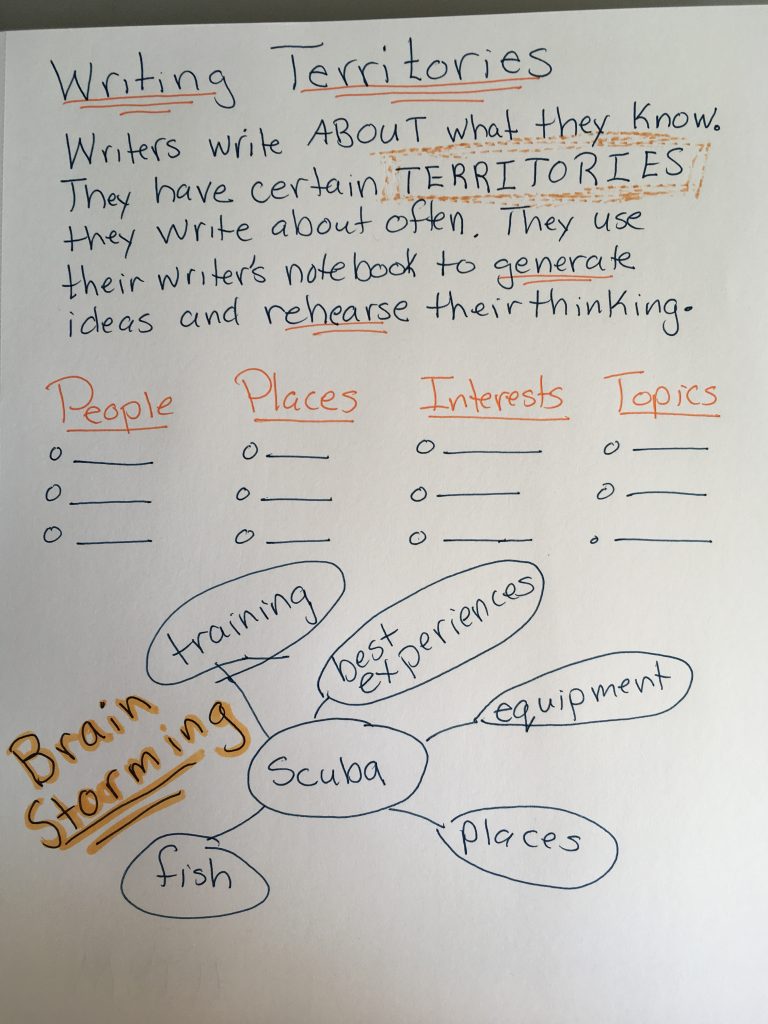 Writing Territories
Writers write ABOUT what they know.
They have certain TERRITORIES
they write about often. They use
their writer's notebook to generate
ideas and rehearse their thinking.
People Places Interests Topics
training
best
experiences
equipment
Scuba
Brain
Storming
places
fish